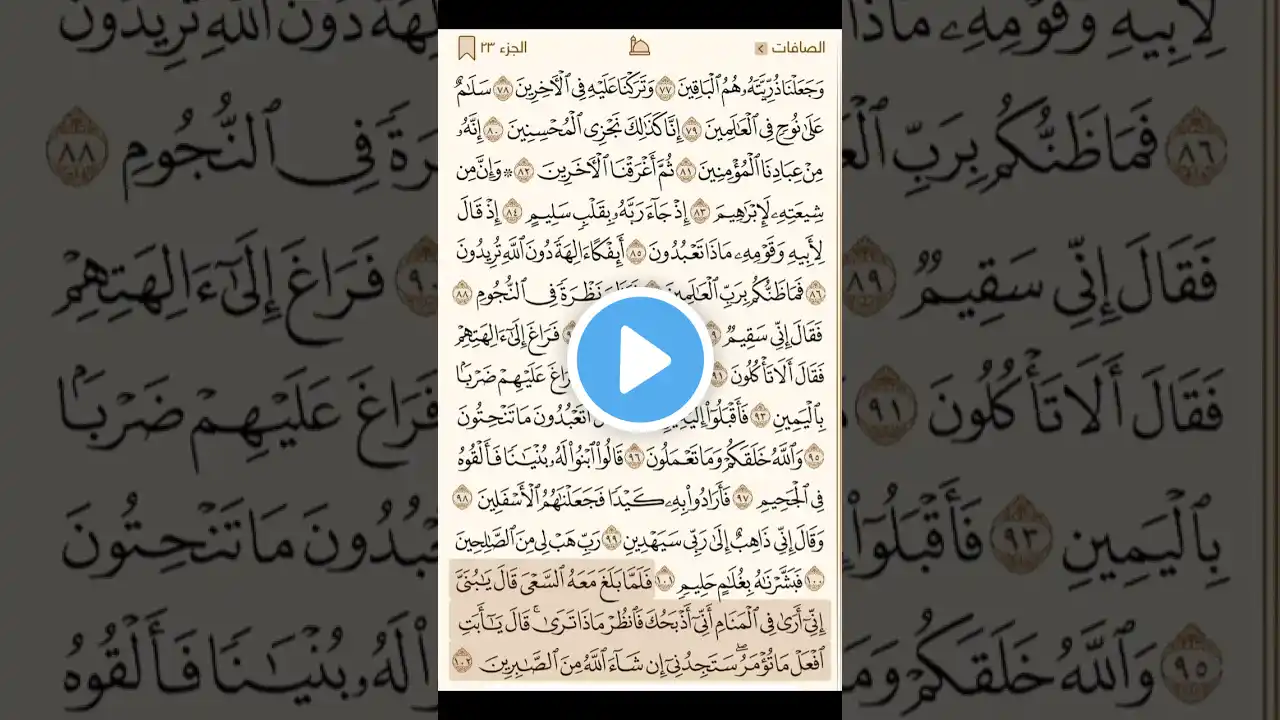 الصافات
الجزء ٢٣
وَجَعَلْنَا ذُرِّيَّتَهُۥ هُمُ ٱلْبَاقِينَ ٧٧ وَتَرَكْنَا عَلَيْهِ فِى ٱلْـَٔاخِرِينَ ٧٨ سَلَٰمٌ
عَلَىٰ نُوحٍ فِى ٱلْعَٰلَمِينَ ٧٩ إِنَّا كَذَٰلِكَ نَجْزِى ٱلْمُحْسِنِينَ ٨٠ إِنَّهُۥ
مِنْ عِبَادِنَا ٱلْمُؤْمِنِينَ ٨١ ثُمَّ أَغْرَقْنَا ٱلْـَٔاخَرِينَ ٨٢ ۞ وَإِنَّ مِن
شِيعَتِهِۦ لَإِبْرَٰهِيمَ ٨٣ إِذْ جَآءَ رَبَّهُۥ بِقَلْبٍ سَلِيمٍ ٨٤ إِذْ قَالَ
لِأَبِيهِ وَقَوْمِهِۦ مَاذَا تَعْبُدُونَ ٨٥ أَئِفْكًا ءَالِهَةً دُونَ ٱللَّهِ تُرِيدُونَ
٨٦ فَمَا ظَنُّكُم بِرَبِّ ٱلْعَٰلَمِينَ نَظْرَةً فِى ٱلنُّجُومِ ٨٨
فَقَالَ إِنِّى سَقِيمٌ فَرَاغَ إِلَىٰٓ ءَالِهَتِهِمْ
فَقَالَ أَلَا تَأْكُلُونَ ٩١ عَلَيْهِمْ ضَرْبًۢا
بِٱلْيَمِينِ ٩٣ فَأَقْبَلُوٓا۟ أَتَعْبُدُونَ مَا تَنْحِتُونَ
٩٥ وَٱللَّهُ خَلَقَكُمْ وَمَا تَعْمَلُونَ ٩٦ قَالُوا۟ ٱبْنُوا۟ لَهُۥ بُنْيَٰنًا فَأَلْقُوهُ
فِى ٱلْجَحِيمِ ٩٧ فَأَرَادُوا۟ بِهِۦ كَيْدًا فَجَعَلْنَٰهُمُ ٱلْأَسْفَلِينَ ٩٨
وَقَالَ إِنِّى ذَاهِبٌ إِلَىٰ رَبِّى سَيَهْدِينِ ٩٩ رَبِّ هَبْ لِى مِنَ ٱلصَّٰلِحِينَ
١٠٠ فَبَشَّرْنَٰهُ بِغُلَٰمٍ حَلِيمٍ ١٠١ فَلَمَّا بَلَغَ مَعَهُ ٱلسَّعْىَ قَالَ يَٰبُنَىَّ
إِنِّىٓ أَرَىٰ فِى ٱلْمَنَامِ أَنِّىٓ أَذْبَحُكَ فَٱنظُرْ مَاذَا تَرَىٰ ۚ قَالَ يَٰٓأَبَتِ
ٱفْعَلْ مَا تُؤْمَرُ ۖ سَتَجِدُنِىٓ إِن شَآءَ ٱللَّهُ مِنَ ٱلصَّٰبِرِينَ ١٠٢